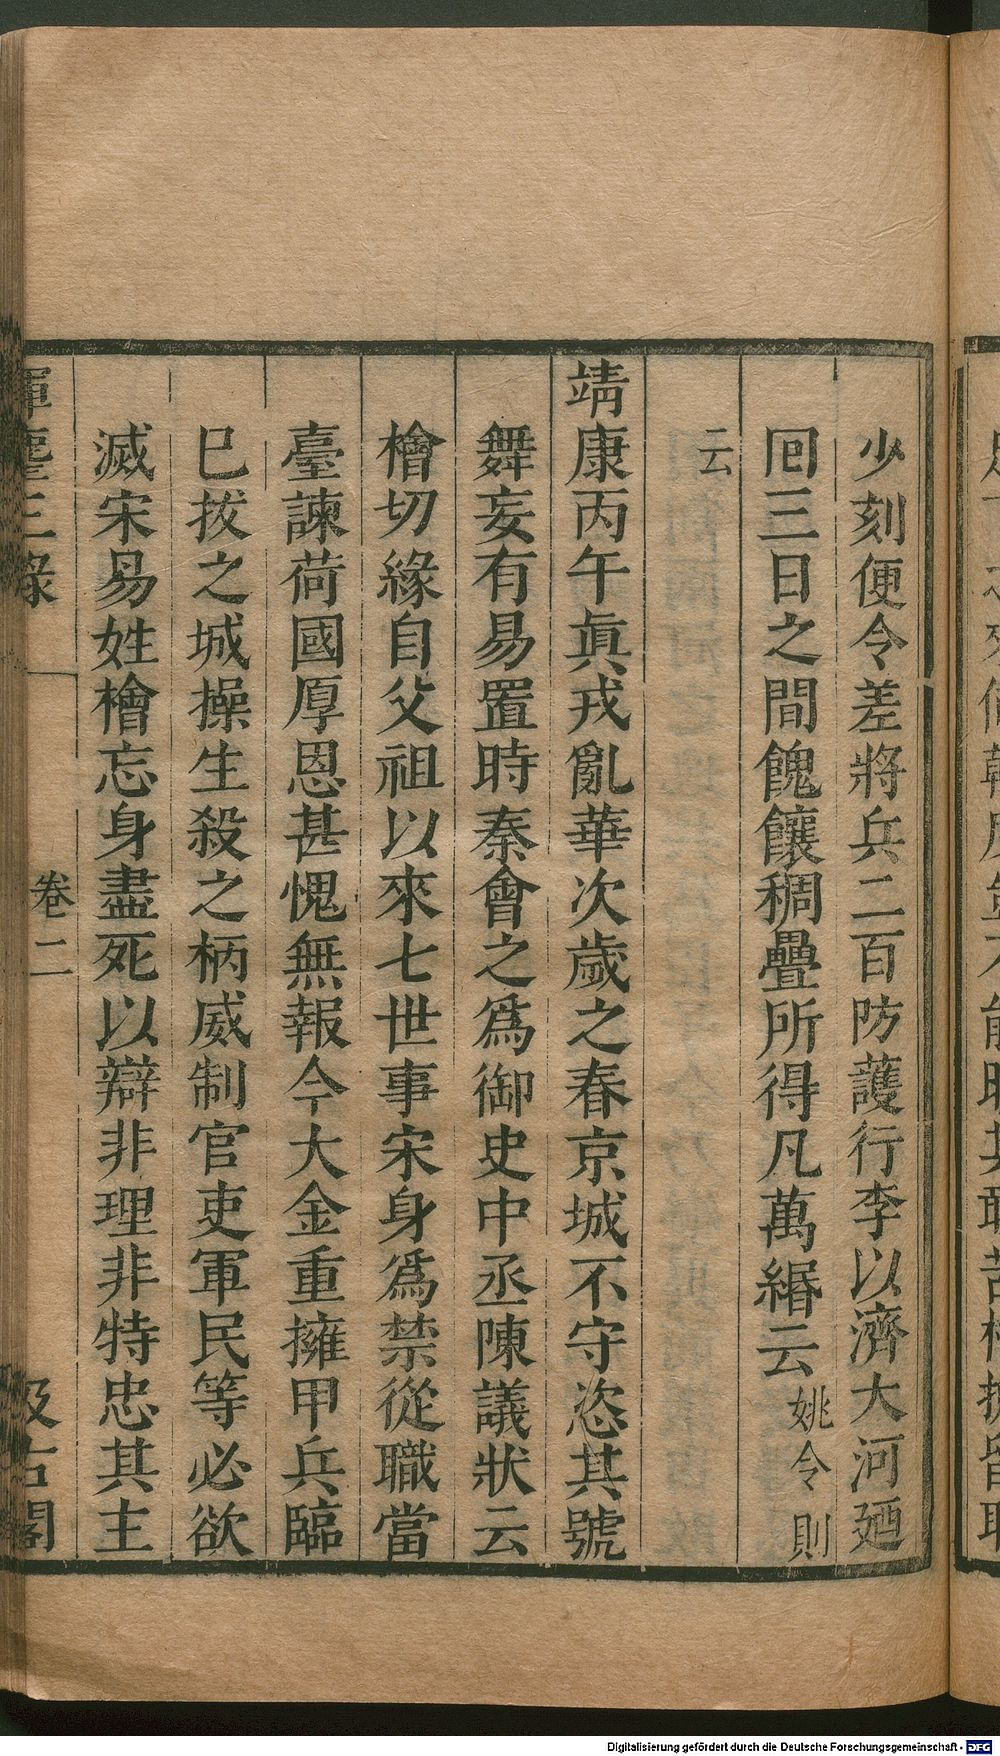 少刻便令差將兵二百防護行李以濟大河廼
囘三日之間餽饟稠疊所得凡萬緡云姚令則
云
靖康丙午眞戎亂華次歲之春京城不守恣其號
舞妄有易置時秦會之爲御史中丞陳議狀云
檜切緣自父祖以來七世事宋身爲禁從職當
臺諫荷國厚恩甚愧無報今大金重擁甲兵臨
已拔之城操生殺之柄威制官吏軍民等必欲
滅宋易姓檜忘身盡死以辯非理非特忠其主
揮麈三錄 卷二 汲古閣
Digitalisierung gefördert durch die Deutsche Forschungsgemeinschaft - DFG